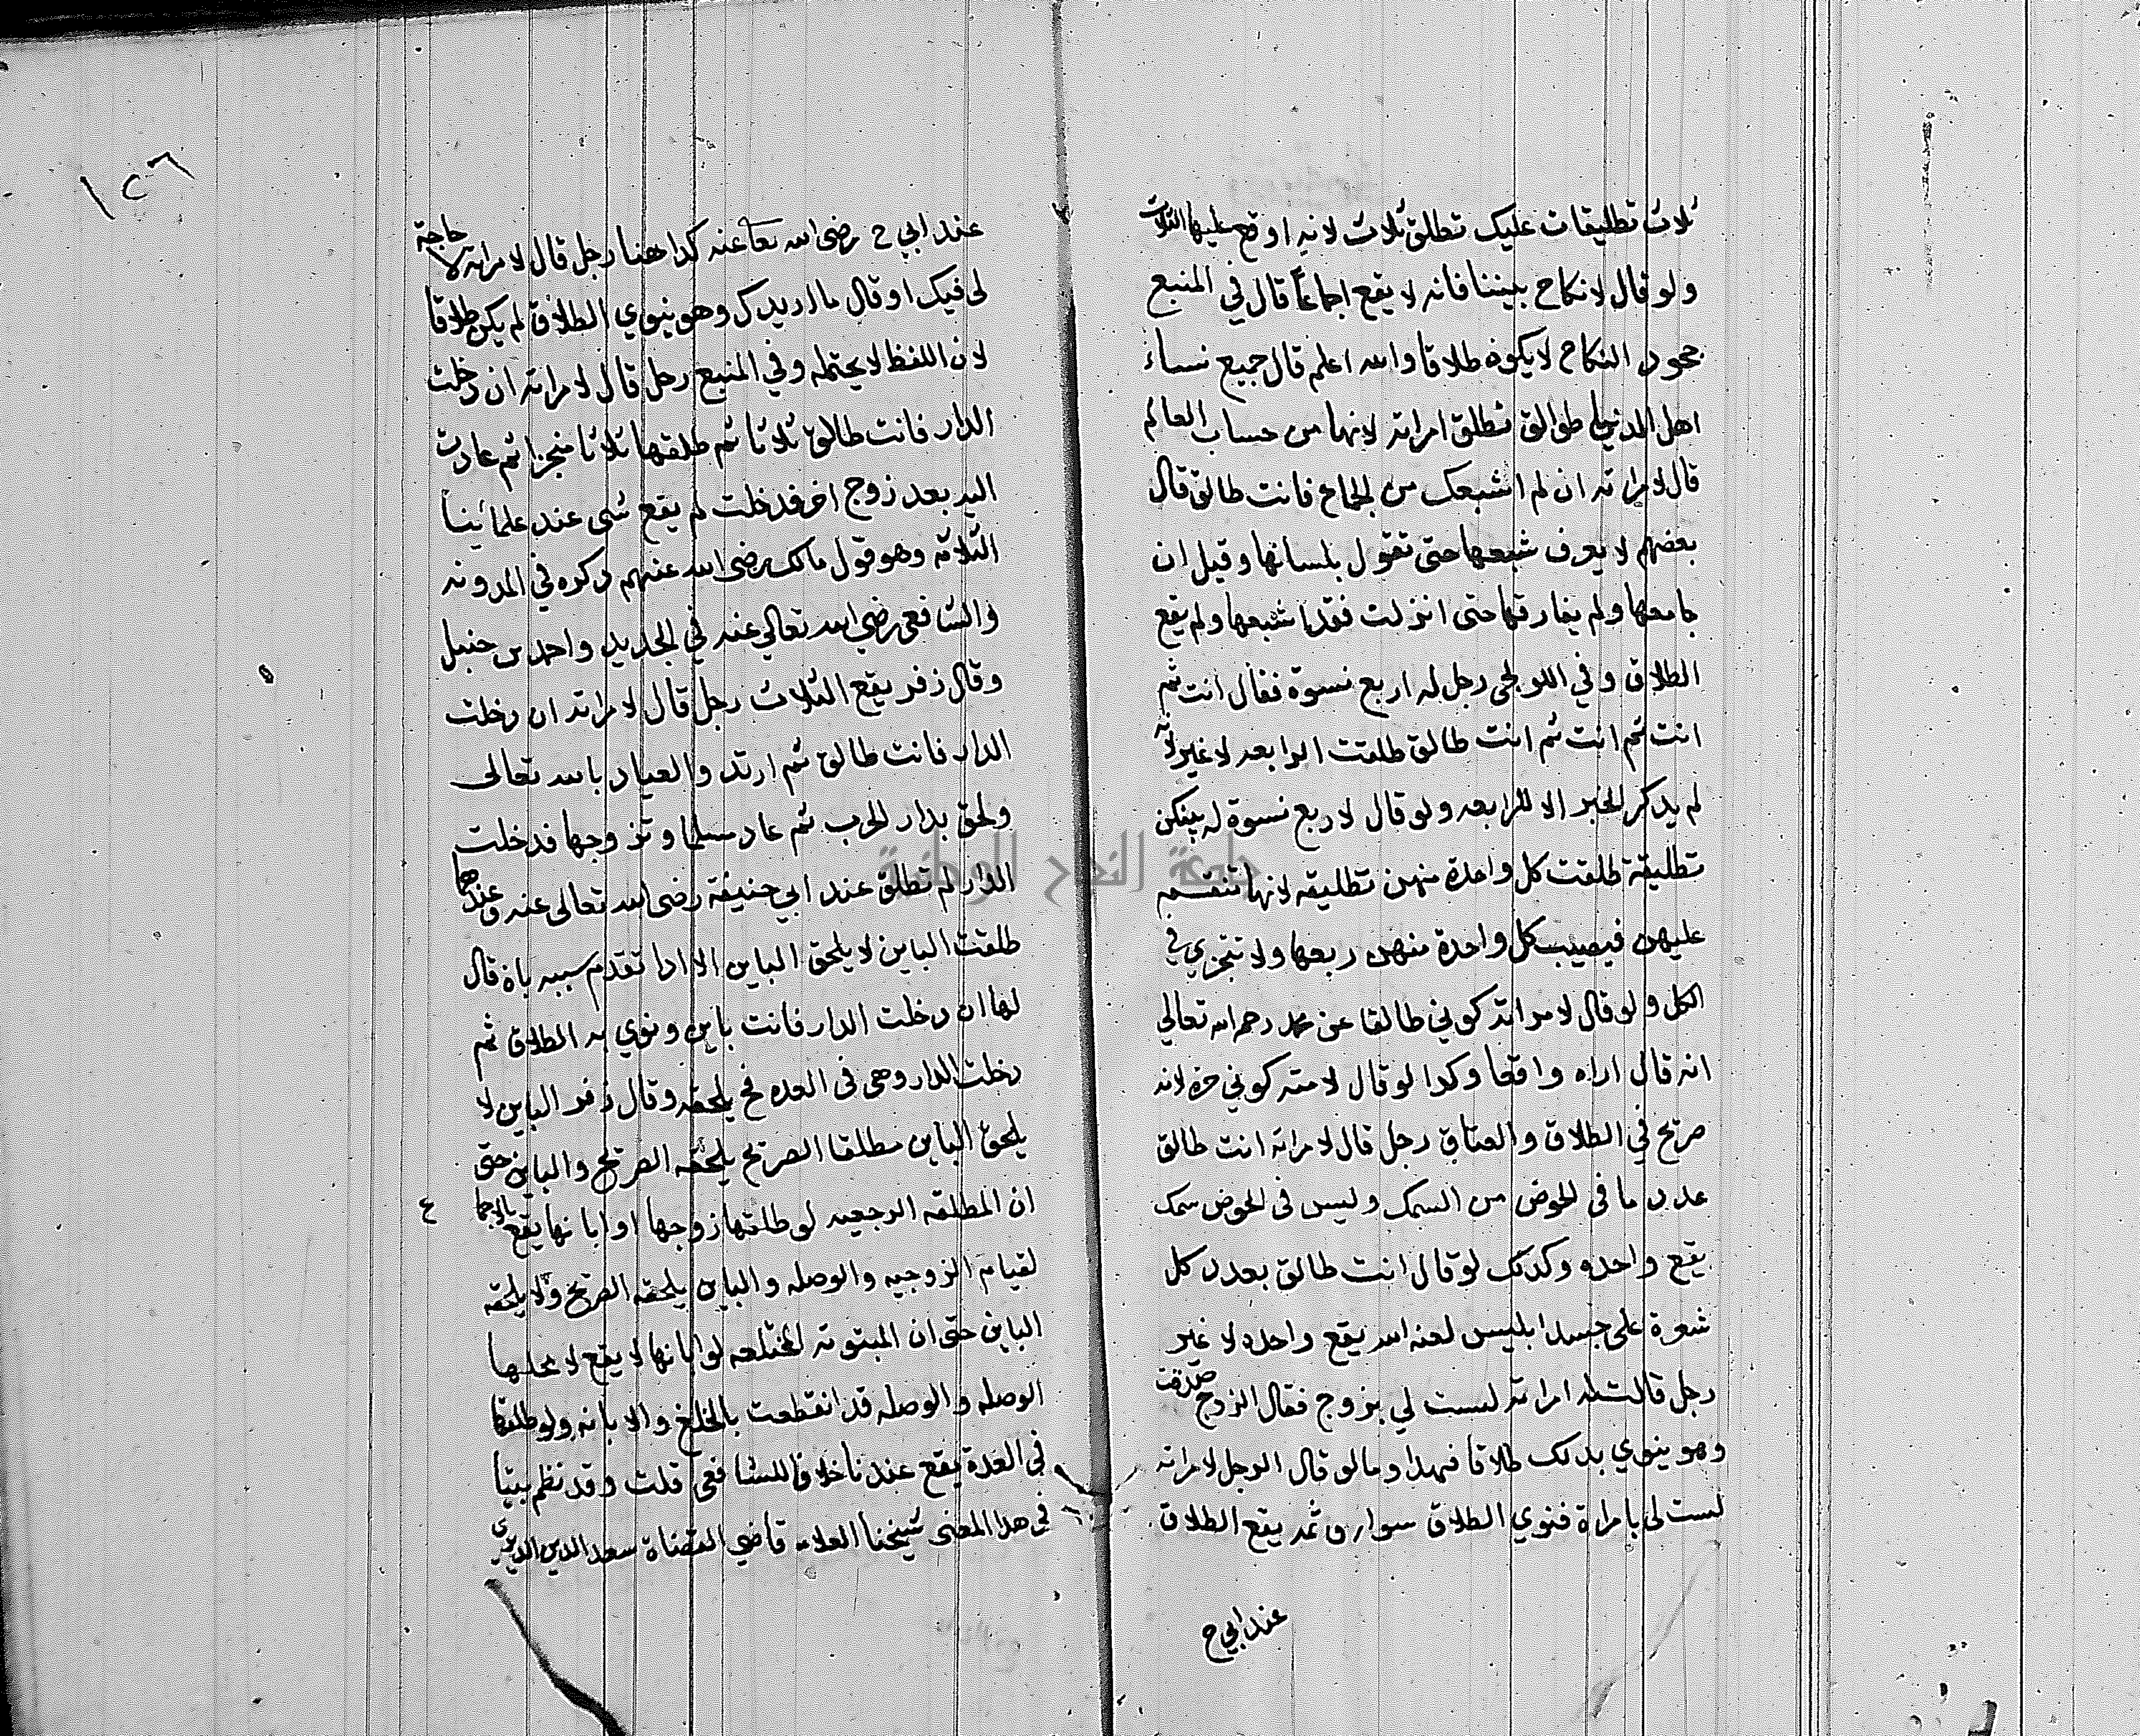 ثلاث تطليقات عليك تطلق ثلاث لانه اوقع عليها الثلاث
ولو قال لا نكاح بيننا فانه لا يقع اجماعاً قال في المنبع
جحود النكاح لا يكون طلاقا والله اعلم قال جميع نساء
اهل الدنيا طوالق تطلق امراته لانها من حساب العالم
قال لامراته ان لم اشبعك من الجماع فانت طالق قال
بعضهم لا يعرف شبعها حتى تقول بلسانها وقيل ان
جامعها ولم يفارقها حتى انزلت فقد اشبعها ولم يقع
الطلاق وفي اللولجي رجل له اربع نسوة فقال انت ثم
انت ثم انت ثم انت طالق طلقت الرابعه لا غير لانه
لم يدكر الخبر الا للرابعه ولو قال لاربع نسوة له بينكن
تطليقة طلقت كل واحدة منهن تطليقه لانها تنقسم
عليهن فيصيب كل واحدة منهن ربعها ولا تتجزي في
الكل ولو قال لامراته كوني طالقا عن محمد رحمه الله تعالي
انه قال اراه واقعا وكدا لو قال لامته كوني حره لانه
صريح في الطلاق والعتاق رجل قال لامراته انت طالق
عدد ما في الحوض من السمك وليس في الحوض سمك
يقع واحده وكدلك لو قال انت طالق بعدد كل
شعرة على جسد ابليس لعنه الله يقع واحده لا غير
رجل قالت له امراته لست لي بزوج فقال الزوج صدقت
وهو ينوي بدلك طلاقا فهدا وما لو قال الرجل لامراته
لست لي بامراة فنوي الطلاق سوا وثمه يقع الطلاق
عند ابي ح
١٥٦
عند ابي ح رضى الله تعا عنه كدا هنا رجل قال لامراته لا حاجة
لى فيك او قال ما اريدك وهو ينوي الطلاق لم يكن طلاقا
لان اللفظ لا يحتمله وفي المنبع رجل قال لامراته ان دخلت
الدار فانت طالق ثلاثا ثم طلقها ثلاثا منجزا ثم عادت
اليه بعد زوج اخر فدخلت لم يقع شى عند علمائنا
الثلاثه وهو قول مالك رضى الله عنهم دكره في المدونه
والشافعى رضي الله تعالي عنه في الجديد واحمد بن حنبل
وقال زفر يقع الثلاث رجل قال لامراته ان دخلت
الدار فانت طالق ثم ارتد والعياد بالله تعالى
ولحق بدار الحرب ثم عاد مسلما وتزوجها فدخلت
الدار لم تطلق عند ابي حنيفة رضى الله تعالى عنه وعندهما
طلقت الباين لا يلحق الباين الا ادا تقدم سببه بان قال
لها ان دخلت الدار فانت باين ونوي به الطلاق ثم
دخلت الدار وهى فى العده فح يلحقه وقال زفر الباين لا
يلحق الباين مطلقا الصريح يلحقه الصريح والباين حتى
ان المطلقه الرجعيه لو طلقها زوجها او ابانها يقع بالاجماع
لقيام الزوجيه والوصله والباين يلحقه الصريح ولا يلحقه
الباين حتى ان المبتوته المختلعه لو ابانها لا يقع لا محلها
الوصله والوصله قد انقطعت بالخلع والابانه ولو طلقها
في العدة يقع عندنا خلافا للشافعى قلت وقد نظم بيتا
في هدا المعنى شيخنا العلامه قاضي القضاة سعد الدين الديري